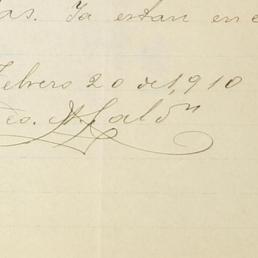 as. Ya estan en e
Febrero 20 de 1,910
eo. A. Galdⁿ